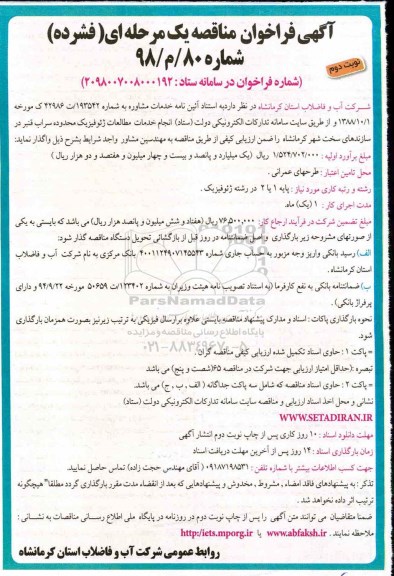 آگهی فراخوان مناقصه یک مرحله ای( فشرده)
شماره ۸۰/م/۹۸
نوبت دوم
(شماره فراخوان در سامانه ستاد : ۲۰۹۸۰۰۷۰۰۸۰۰۰۱۹۲)
شـرکت آب و فاضلاب استان کرمانشاه در نظر دارد به استناد آئین نامه خدمات مشاوره به شماره ۱۹۳۵۴۲/ت ۴۲۹۸۶ ک مورخه
۱۳۸۸/۱۰/۱ و از طریق سایت سامانه تدارکات الکترونیکی دولت (ستاد) انجام خدمات مطالعات ژئوفیزیک محدوده سراب قنبر در
سازندهای سخت شهر کرمانشاه را ضمن ارزیابی کیفی از طریق مناقصه به مهندسین مشاور واجد شرایط بشرح ذیل واگذار نماید:
مبلغ برآورد اولیه : ۱/۵۲۴/۷۰۲/۰۰۰ ریال (یک میلیارد و پانصد و بیست و چهار میلیون و هفتصد و دو هزار ریال )
محل تامین اعتبار : طرحهای عمرانی .
رشته و رتبه کاری مورد نیاز : پایه ۱ یا ۲ در رشته ژئوفیزیک .
مدت اجرای کار : ۱ (یک) ماه.
مبلغ تضمین شرکت در فرآیند ارجاع کار: ۷۶,۵۰۰,۰۰۰ ریال (هفتاد و شش میلیون و پانصد هزار ریال) می باشد که بایستی به یکی
از صورتهای مشروحه زیر بارگذاری و اصل ضمانتنامه در روز قبل از بازگشائی تحویل دستگاه مناقصه گذار شود:
الف) رسید بانکی واریز وجه مزبور به حساب جاری شماره ۴۰۰۱۱۲۴۹۰۷۱۴۵۵۴۳ بانک مرکزی به نام شرکت آب و فاضلاب
استان کرمانشاه .
ب) ضمانتنامه بانکی به نفع کارفرما (به استناد تصویب نامه هیئت وزیران به شماره ۱۲۳۴۰۲/ت ۵۰۶۵۹ مورخ ۹۴/۹/۲۲ و دارای
پرفراژ بانکی) .
نحوه بارگذاری پاکات : اسناد و مدارک پیشنهاد مناقصه بایستی علاوه بر ارسال فیزیکی به ترتیب زیر نیز بصورت همزمان بارگذاری
شود.
= پاکت ۱ : حاوی اسناد تکمیل شده ارزیابی کیفی مناقصه گران.
تبصره :(حداقل امتیاز ارزیابی جهت شرکت در مناقصه ۶۵(شصت و پنج) می باشد.
= پاکت ۲ : حاوی اسناد مناقصه که شامل سه پاکت جداگانه ( الف ، ب ، ج) می باشد.
نشانی و محل اخذ اسناد ارزیابی و مناقصه سایت سامانه تدارکات الکترونیکی دولت (ستاد)
WWW.SETADIRAN.IR
مهلت دانلود اسناد : ۱۰ روز کاری پس از چاپ نوبت دوم انتشار آگهی
زمان بارگذاری اسناد : ۱۴ روز پس از آخرین مهلت دریافت اسناد
جهت کسب اطلاعات بیشتر با شماره تلفن : ۰۹۱۸۷۱۹۸۵۳۱ ( آقای مهندس حجت زاده) تماس حاصل نمایید.
تذکر : به پیشنهادهای فاقد امضاء ، مشروط ، مخدوش و پیشنهادهایی که بعد از انقضاء مدت مقرر بارگذاری گردد مطلقا" هیچگونه
ترتیب اثر داده نخواهد شد .
ضمنا متقاضیان می توانند متن آگهی را پس از چاپ نوبت دوم در روزنامه در پایگاه ملی اطلاع رسانی مناقصات به نشانی :
http://iets.mporg.ir یا www.abfaksh.ir ملاحظه نمایند .
روابط عمومی شرکت آب و فاضلاب استان کرمانشاه
ParsNamadData
پایگاه اطلاع رسانی مناقصه و مزایده
۰۲۱-۸۸۳۴۹۶۷۰-۵